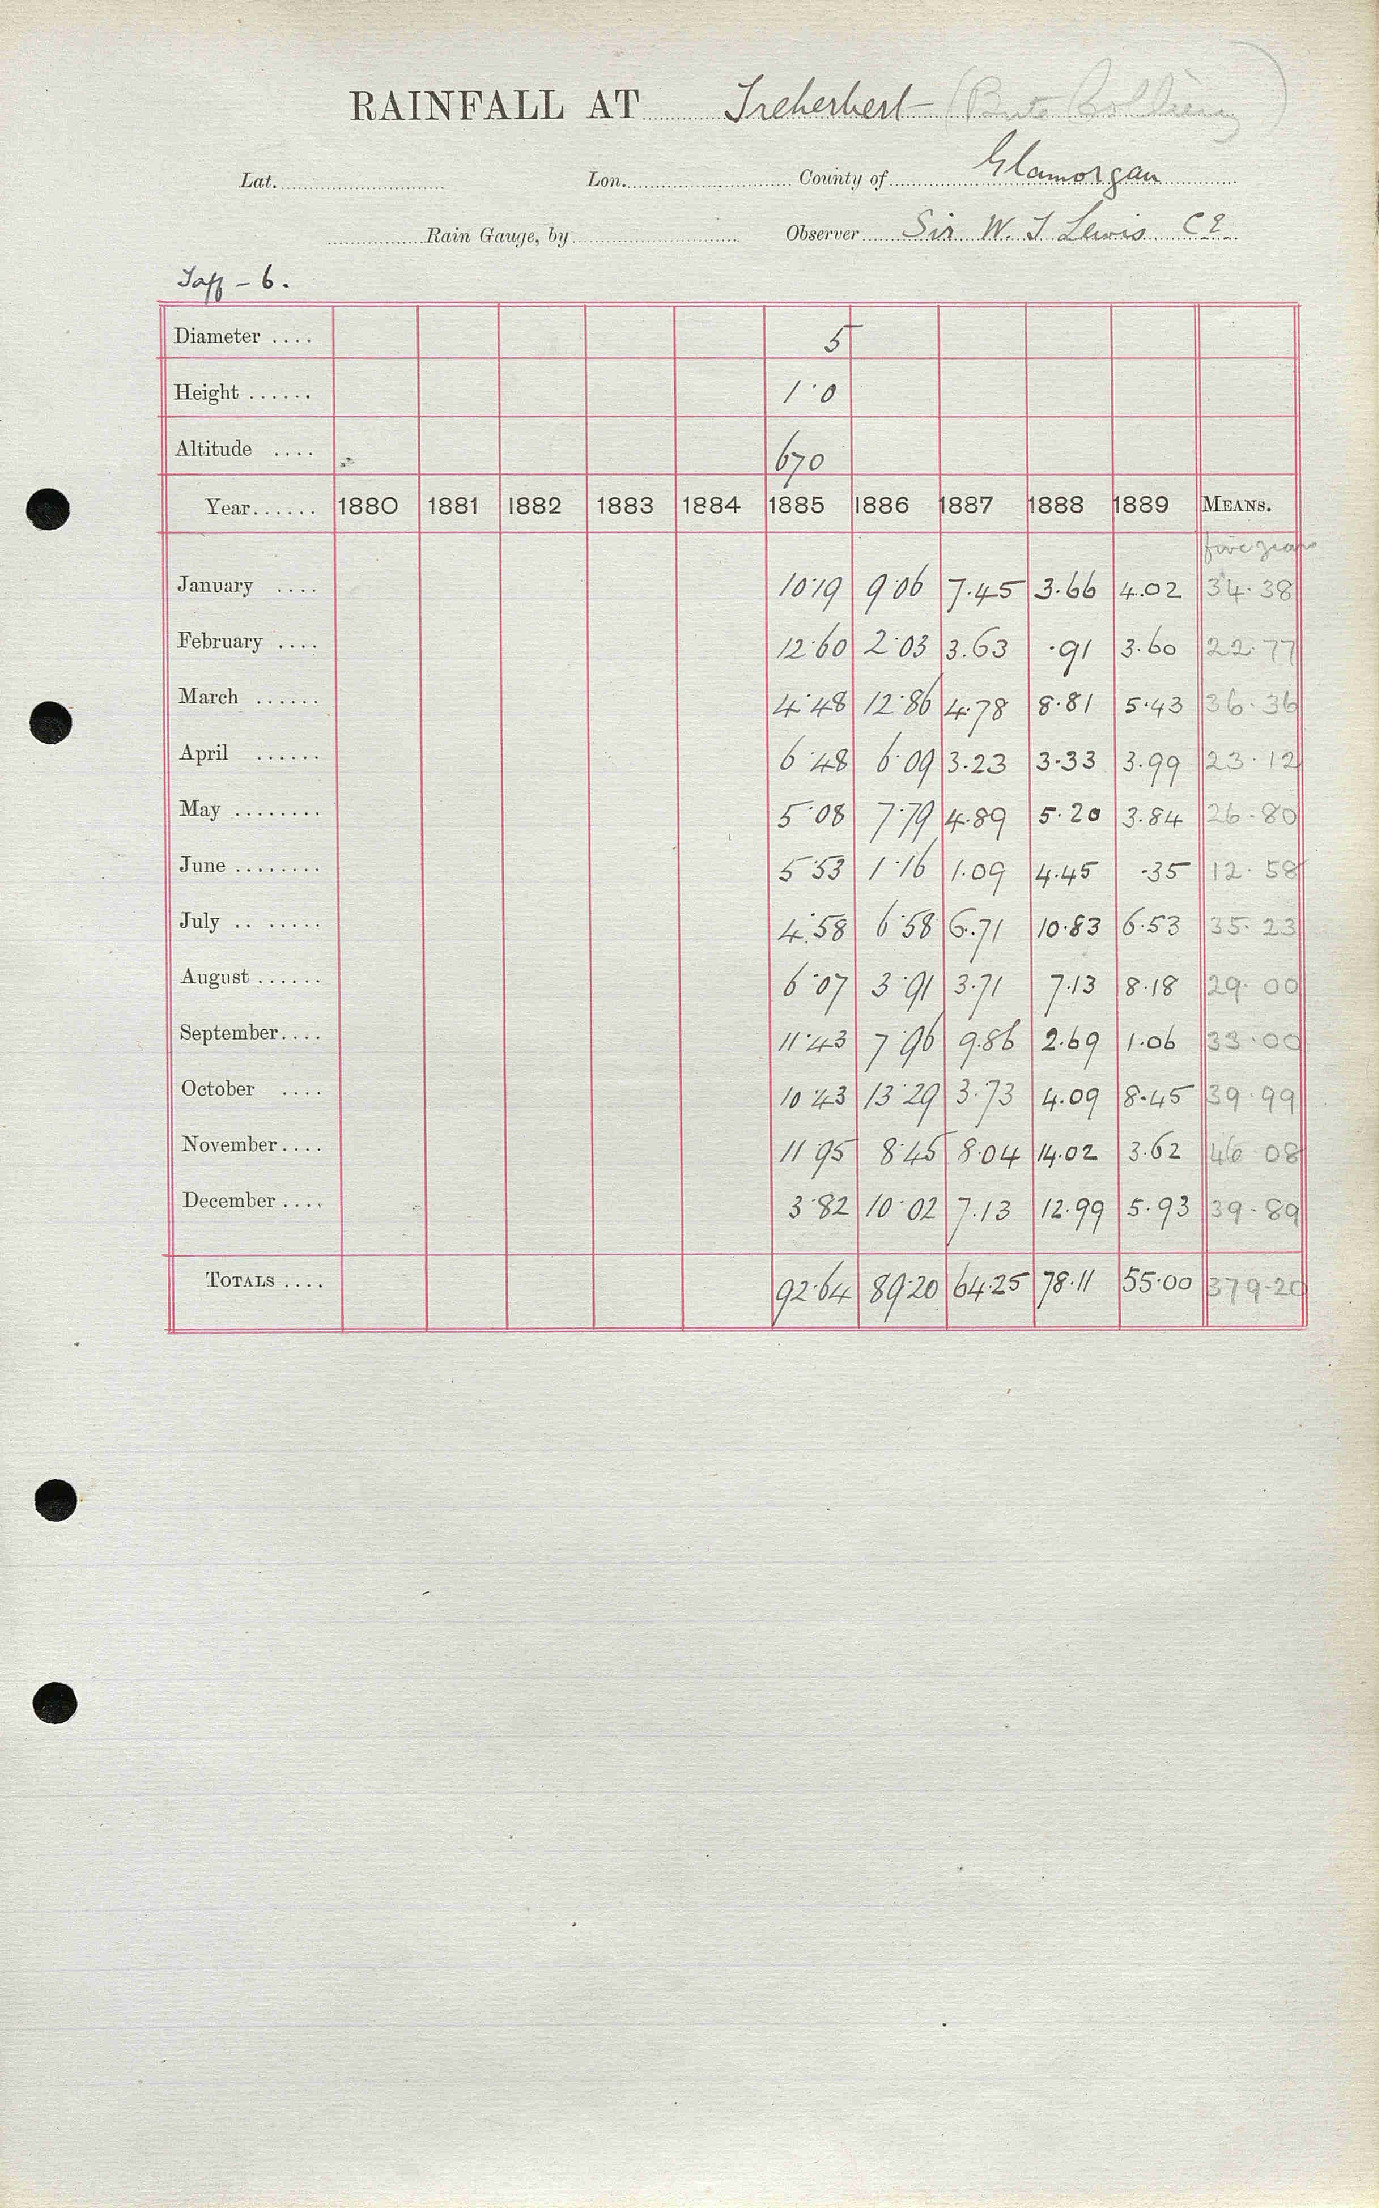 RAINFALL AT Treherbert (Bute Colliery)
Lat. Lon. County of Glamorgan
Rain Gauge, by Observer Sir W. T Lewis C E
Taff - 6.
Diameter .... 5
Height ...... 1·0
Altitude .... 670
Year...... 1880 1881 1882 1883 1884 1885 1886 1887 1888 1889 MEANS.
five years
January .... 10·19 9·06 7.45 3.66 4.02 34.38
February .... 12·60 2·03 3.63 .91 3.60 22.77
March ...... 4·48 12·86 4.78 8.81 5.43 36.36
April ...... 6·48 6·09 3.23 3.33 3.99 23.12
May ........ 5·08 7·79 4.89 5.20 3.84 26.80
June ........ 5·53 1·16 1.09 4.45 .35 12.58
July .. ..... 4.58 6·58 6.71 10.83 6.53 35.23
August ...... 6·07 3·91 3.71 7.13 8.18 29.00
September.... 11·43 7·96 9.86 2.69 1.06 33.00
October .... 10·43 13·29 3.73 4.09 8.45 39.99
November.... 11·95 8·45 8.04 14.02 3.62 46 08
December .... 3·82 10·02 7.13 12.99 5.93 39.89
TOTALS .... 92·64 89·20 64.25 78.11 55.00 379.20